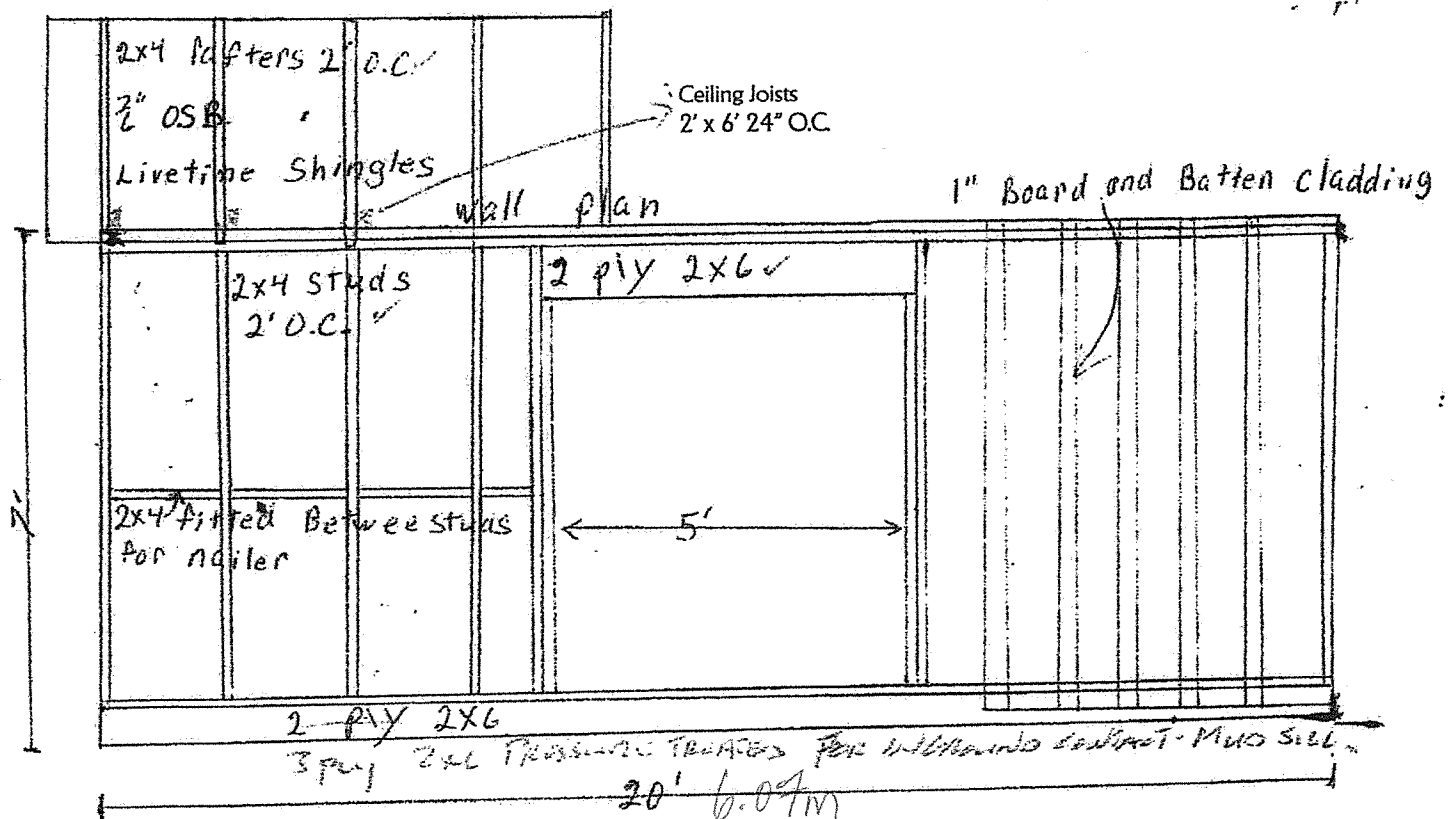 2x4 rafters 2' O.C. ✓
1/2" OSB
Livetine Shingles
Ceiling Joists
2' x 6' 24" O.C.
wall plan
1" Board and Batten cladding
2x4 studs
2' O.C. ✓
2 ply 2x6 ✓
7'
5'
2x4 fitted Betwee studs
for nailer
2 ply 2x6
3 ply PRESSURE TREATED FOR CONTACT - MUD SILL
20' 6.09m